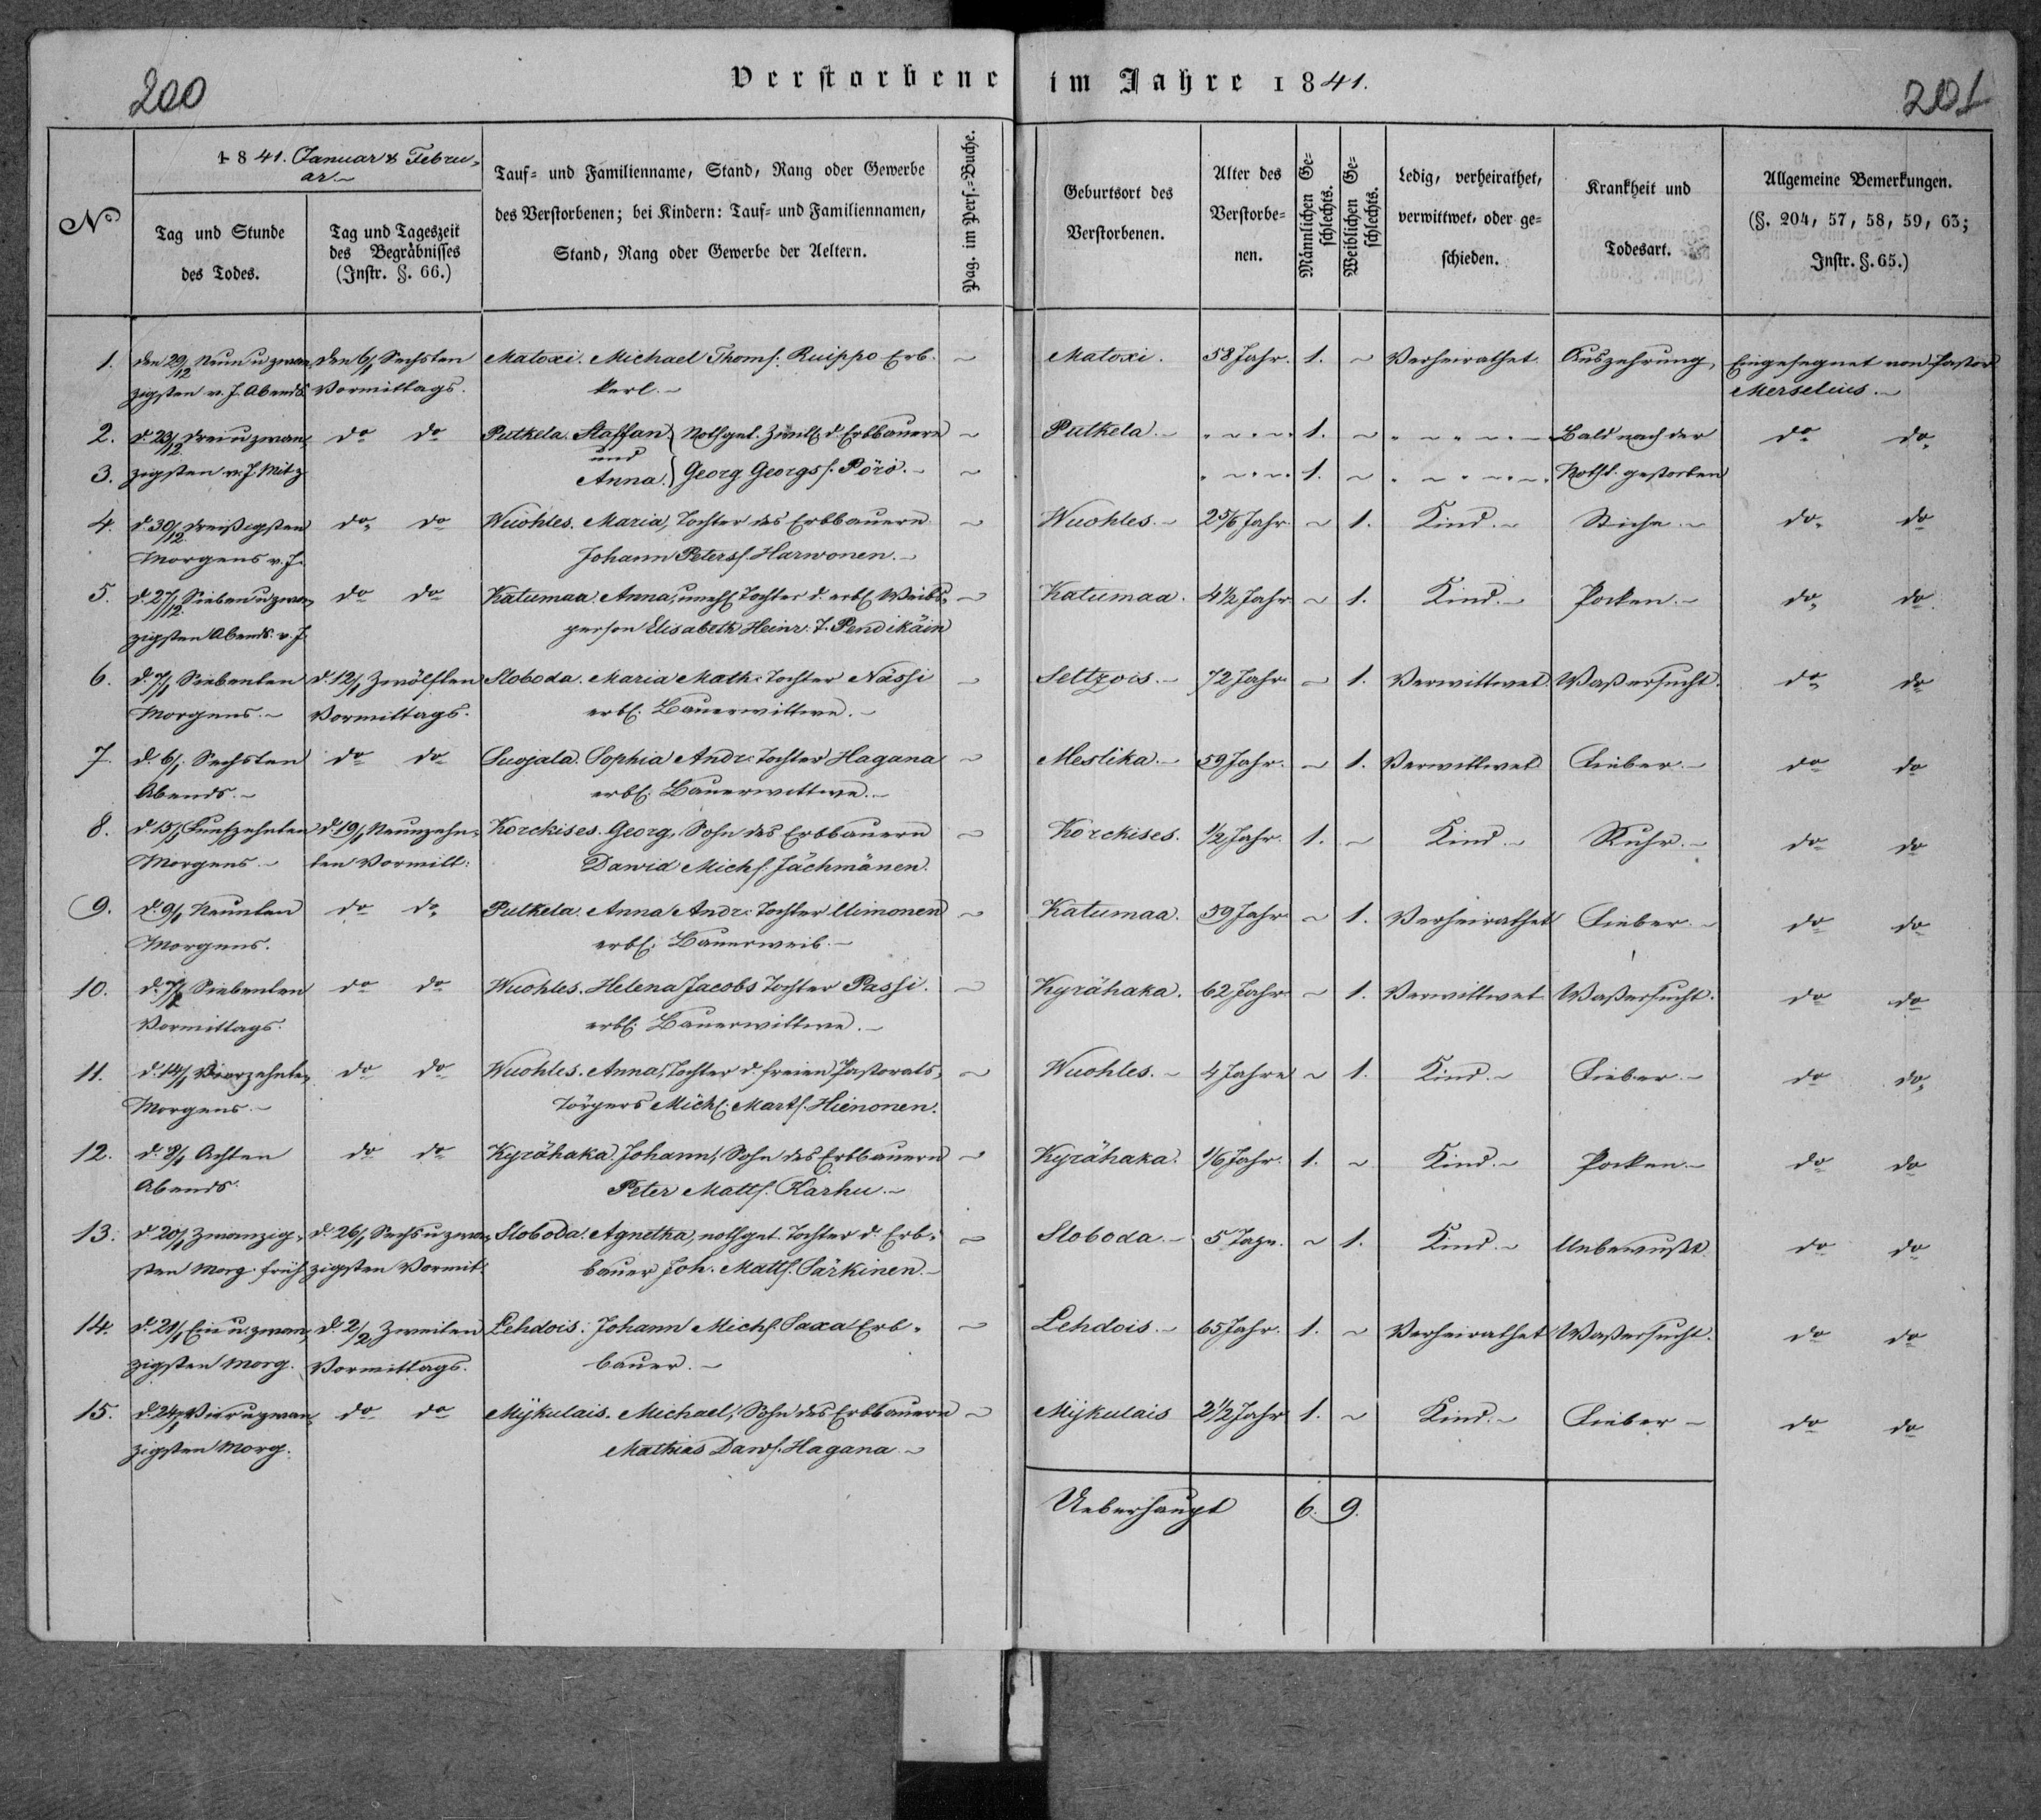 200
Verstorbene im Jahre 1841.
201
No
1841. Januar & Februar.
Tag und Stunde des Todes.
Tag und Tageszeit des Begräbnisses (Instr. §. 66.)
Tauf- und Familienname, Stand, Rang oder Gewerbe des Verstorbenen; bei Kindern: Tauf- und Familiennamen, Stand, Rang oder Gewerbe der Aeltern.
Pag. im Pers.-Buche.
Geburtsort des Verstorbenen.
Alter des Verstorbenen.
Männlichen Geschlechts.
Weiblichen Geschlechts.
Ledig, verheirathet, verwittwet, oder geschieden.
Krankheit und Todesart.
Allgemeine Bemerkungen. (§. 204, 57, 58, 59, 63; Instr. §. 65.)
1. den 29/12 Neun u zwan- den 6/1 Sechsten Matoxi. Michael Thoms. Ruippo Erb- Matoxi. 58 Jahr. 1. Verheirathet Auszehrung, Eingesegnet von Pastor
zigsten v. J. Abends Vormittags. kerl. Merselius.
2. d. 23/12 Drei u zwan- do do Putkela. Staffan Nothget. Zwill. d. Erbbauern Putkela. 1. Bald nach der do do
und
3. zigsten v. J. Mitz Anna. Georg Georgs. Pörö. 1. Notht. gestorben
4. d. 30/12 Dreißigsten do do Wuohles. Maria, Tochter des Erbbauern Wuohles. 2 5/6 Jahr 1. Kind. Stiche. do do
Morgens v. J. Johann Peters. Harwonen.
5. d. 27/12 Sieben u zwan- do do Katumaa. Anna, unehl. Tochter d. erbl. Weibs- Katumaa. 4 1/2 Jahr 1. Kind. Pocken. do do
zigsten Abends v. J. person Elisabeth Heinr. T. Pendikäin
6. d. 7/1 Siebenten d. 12/1 Zwölften Sloboda. Maria Math: Tochter Nässi Seltzois. 72 Jahr 1. Verwittwet Waßersucht. do do
Morgens. Vormittags. erbl. Bauerwittwe.
7. d. 6/1 Sechsten do do Suojala. Sophia Andr: Tochter Hagana Mestika. 59 Jahr. 1. Verwittwet Fieber. do do
Abends. erbl. Bauerwittwe.
8. d. 15/1 Funfzehnten d. 19/1 Neunzehn- Korckises. Georg, Sohn des Erbbauern Korckises. 1/2 Jahr. 1. Kind. Ruhr. do do
Morgens. ten Vormitt: Dawid Michs. Jächmänen.
9. d. 9/1 Neunten do do Putkela. Anna Andr: Tochter Mimonen Katumaa. 59 Jahr 1. Verheirathet Fieber. do do
Morgens. erbl. Bauerweib.
10. d. 7/1 Siebenten do do Wuohles. Helena Jacobs Tochter Passi. Kyrähaka. 62 Jahr 1. Verwittwet Waßersucht. do do
Vormittags. erbl. Bauerwittwe.
11. d. 14/1 Vierzehnten do do Wuohles. Anna, Tochter d. freien Pastorats- Wuohles. 4 Jahre 1. Kind. Fieber. do do
Morgens. Törpers Michl. Marts. Hienonen.
12. d. 8/1 Achten do do Kyrähaka. Johann, Sohn des Erbbauern Kyrähaka. 1/6 Jahr. 1. Kind. Pocken. do do
Abends. Peter Matts. Karhu.
13. d. 20/1 Zwanzig- d. 26/1 Sechs u zwan- Sloboda. Agnetha, nothget. Tochter d. Erb- Sloboda. 5 Tage. 1. Kind. Unbewußt. do do
sten Morg. früh zigsten Vormit. bauer Joh. Matts. Särkinen.
14. d. 21/1 Ein u. zwan- d. 2/2 Zweiten Lehdois. Johann Michs. Saxa Erb- Lehdois. 65 Jahr. 1. Verheirathet Waßersucht. do do
zigsten Morg. Vormittags. bauer.
15. d. 24/1 Vier u zwan- do do Mijkulais. Michael, Sohn des Erbbauern Mijkulais 2 1/2 Jahr 1. Kind. Fieber do do
zigsten Morg. Mathias Daws. Hagana
Ueberhaupt 6. 9.